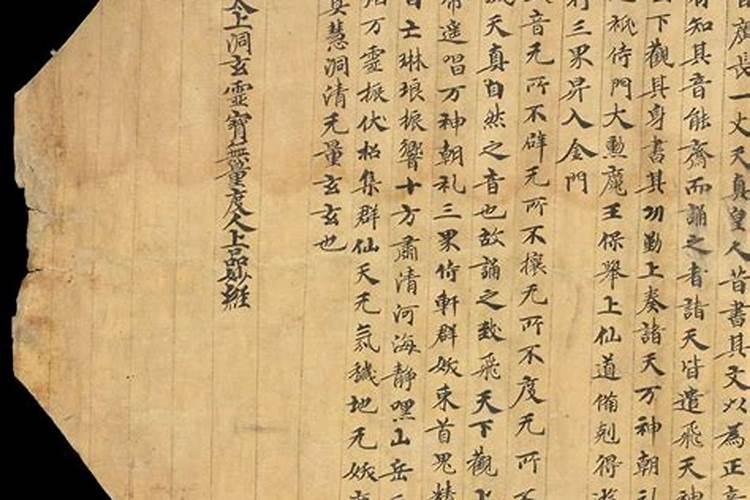 廣長一丈天真皇人昔書其文以為正音
有知其音能齋而誦之者諸天皆遣飛天神
下觀其身書其功勤上奏諸天万神朝礼
祇侍門大勳魔王保舉上仙道備剋得遊
三界昇入金門
音无所不辟无所不禳无所不度无所不
天真自然之音也故誦之致飛天下觀上
帝遥唱万神朝礼三界侍軒群妖束首鬼精
自亡琳琅振響十方肅清河海静嘿山岳
招万靈振伏招集群仙天无氛穢地无妖
真慧洞清无量玄玄也
太上洞玄靈寶無量度人上品妙經